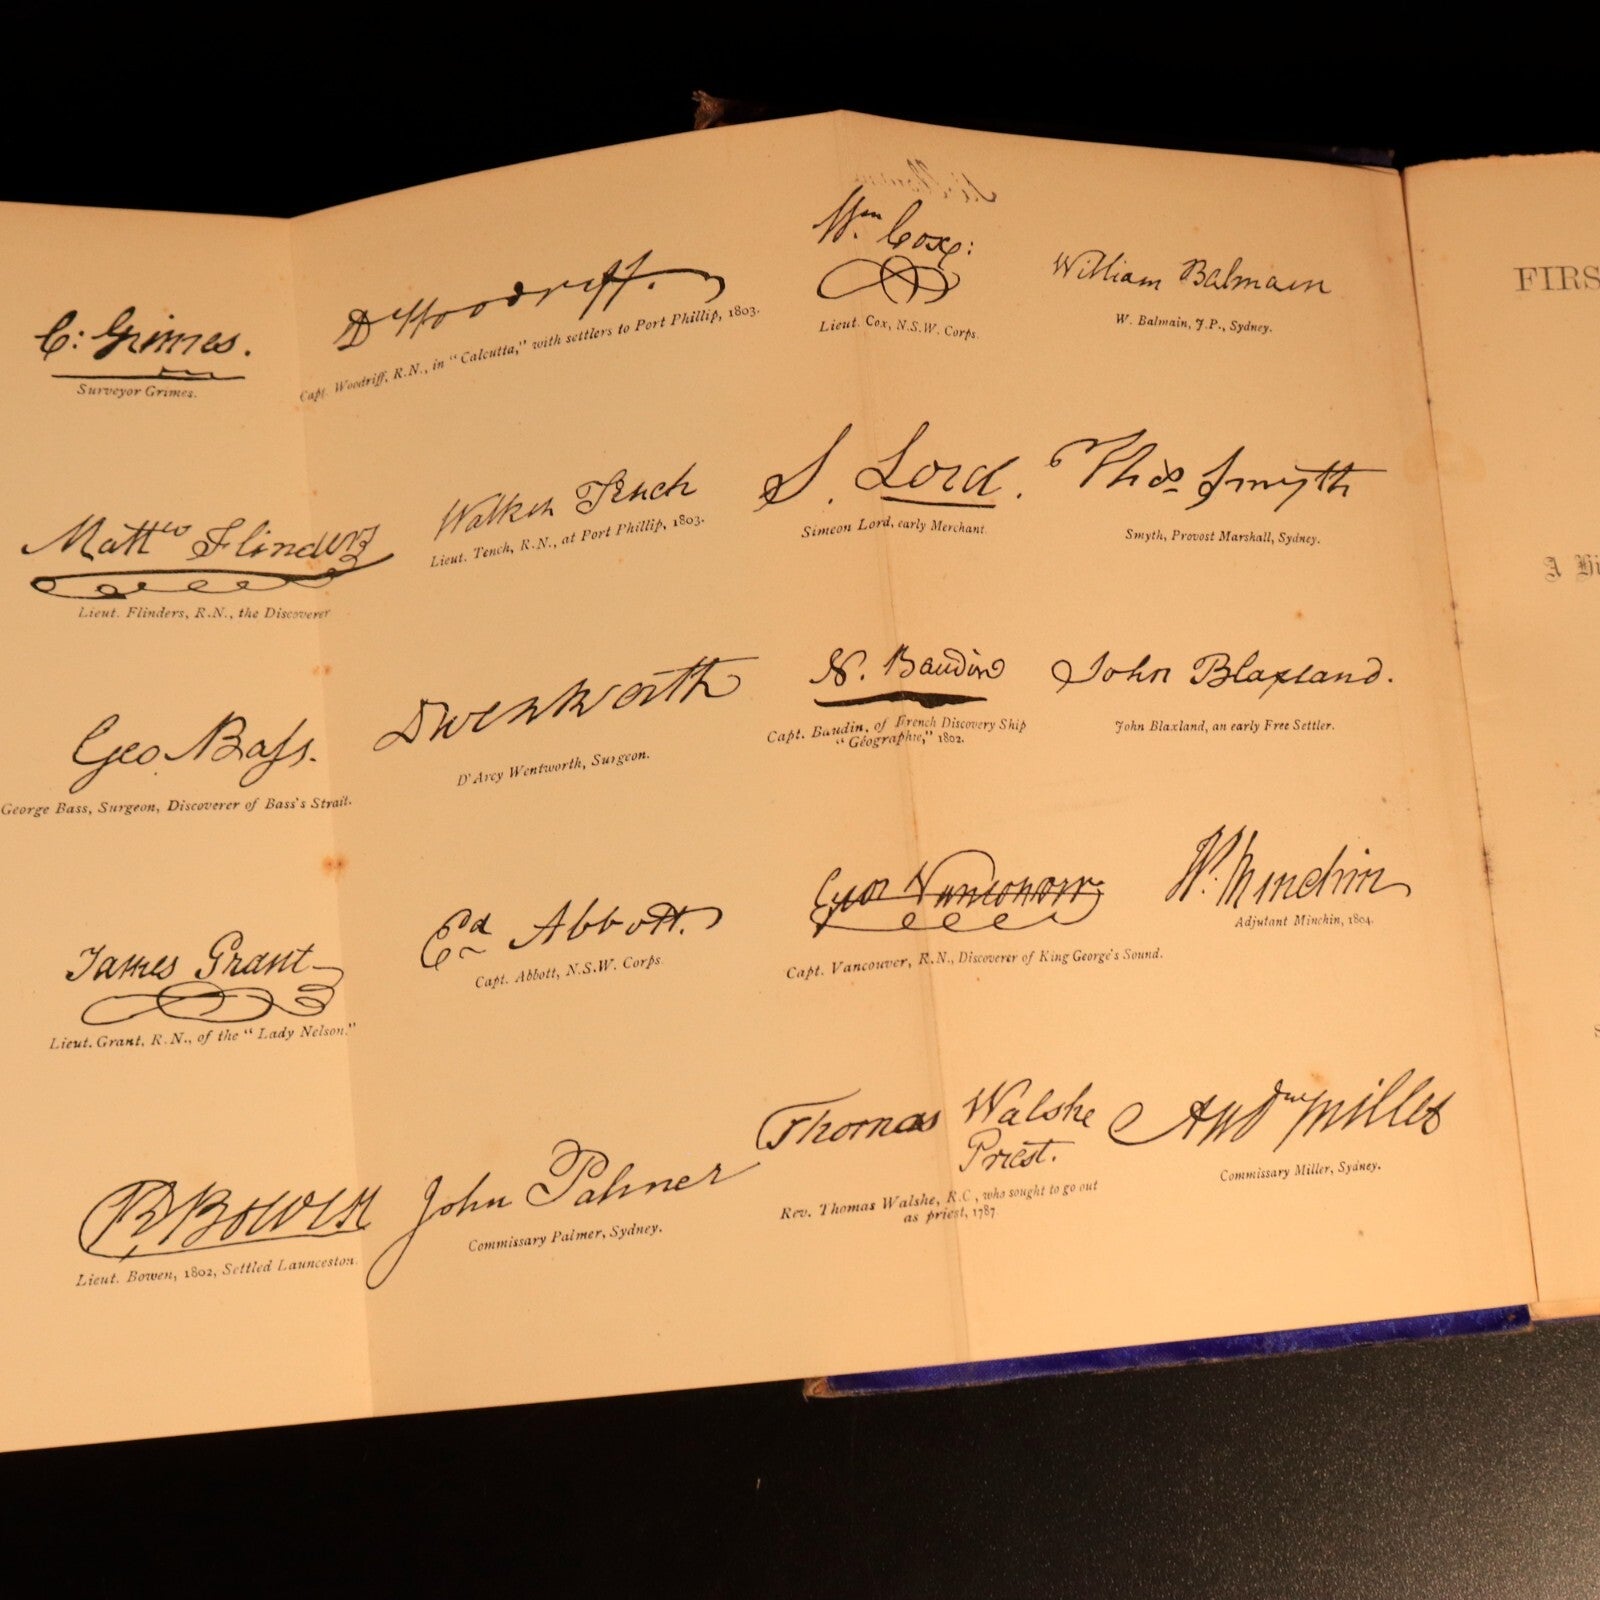 C: Grimes.
Surveyor Grimes.
D Woodriff.
Capt. Woodriff, R.N., in "Calcutta," with settlers to Port Phillip, 1803.
Wm. Cox:
Lieut. Cox, N.S.W. Corps.
William Balmain
W. Balmain, J.P., Sydney.
Mattw Flinders
Lieut. Flinders, R.N., the Discoverer
Watkin Tench
Lieut. Tench, R.N., at Port Phillip, 1803.
S. Lord.
Simeon Lord, early Merchant.
Thos Smyth
Smyth, Provost Marshall, Sydney.
Geo Bass.
George Bass, Surgeon, Discoverer of Bass's Strait.
D Wentworth
D'Arcy Wentworth, Surgeon.
N. Baudin
Capt. Baudin, of French Discovery Ship
"Géographie," 1802.
John Blaxland.
John Blaxland, an early Free Settler.
James Grant
Lieut. Grant, R.N., of the "Lady Nelson."
Ed Abbott.
Capt. Abbott, N.S.W. Corps.
Geo Vancouver
Capt. Vancouver, R.N., Discoverer of King George's Sound.
W. Minchin
Adjutant Minchin, 1804.
Bowen
Lieut. Bowen, 1802, Settled Launceston.
John Palmer
Commissary Palmer, Sydney.
Thomas Walshe
Priest.
Rev. Thomas Walshe, R.C., who sought to go out
as priest, 1787
Andw Miller
Commissary Miller, Sydney.
FIRS
A Hi